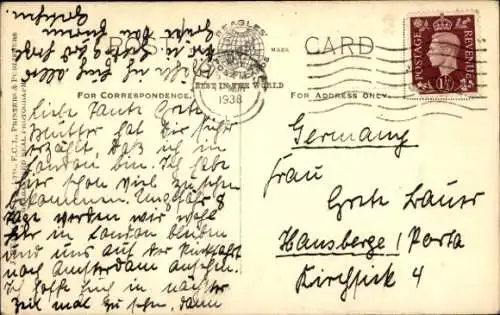 BEAGLES
POST CARD
BEST IN THE WORLD
FOR CORRESPONDENCE.
FOR ADDRESS ONLY.
1938
POSTAGE REVENUE
1½D
LTD., E.C.1., PRINTERS & PUBLISHERS
REAL PHOTOGRAPH
Liebe Tante Grete!
Mutter hat Dir sicher
erzählt, daß ich in
London bin. Ich habe
hier schon viel zu sehen
bekommen. Ungefähr 8
Tage werden wir wohl
hier in London bleiben
und uns auf der Rückfahrt
noch Amsterdam ansehen.
Ich hoffe Euch in nächster
Zeit mal zu sehen, dann
Germany
Frau
Grete Bauer
Hausberge / Porta
Kirchsick 4